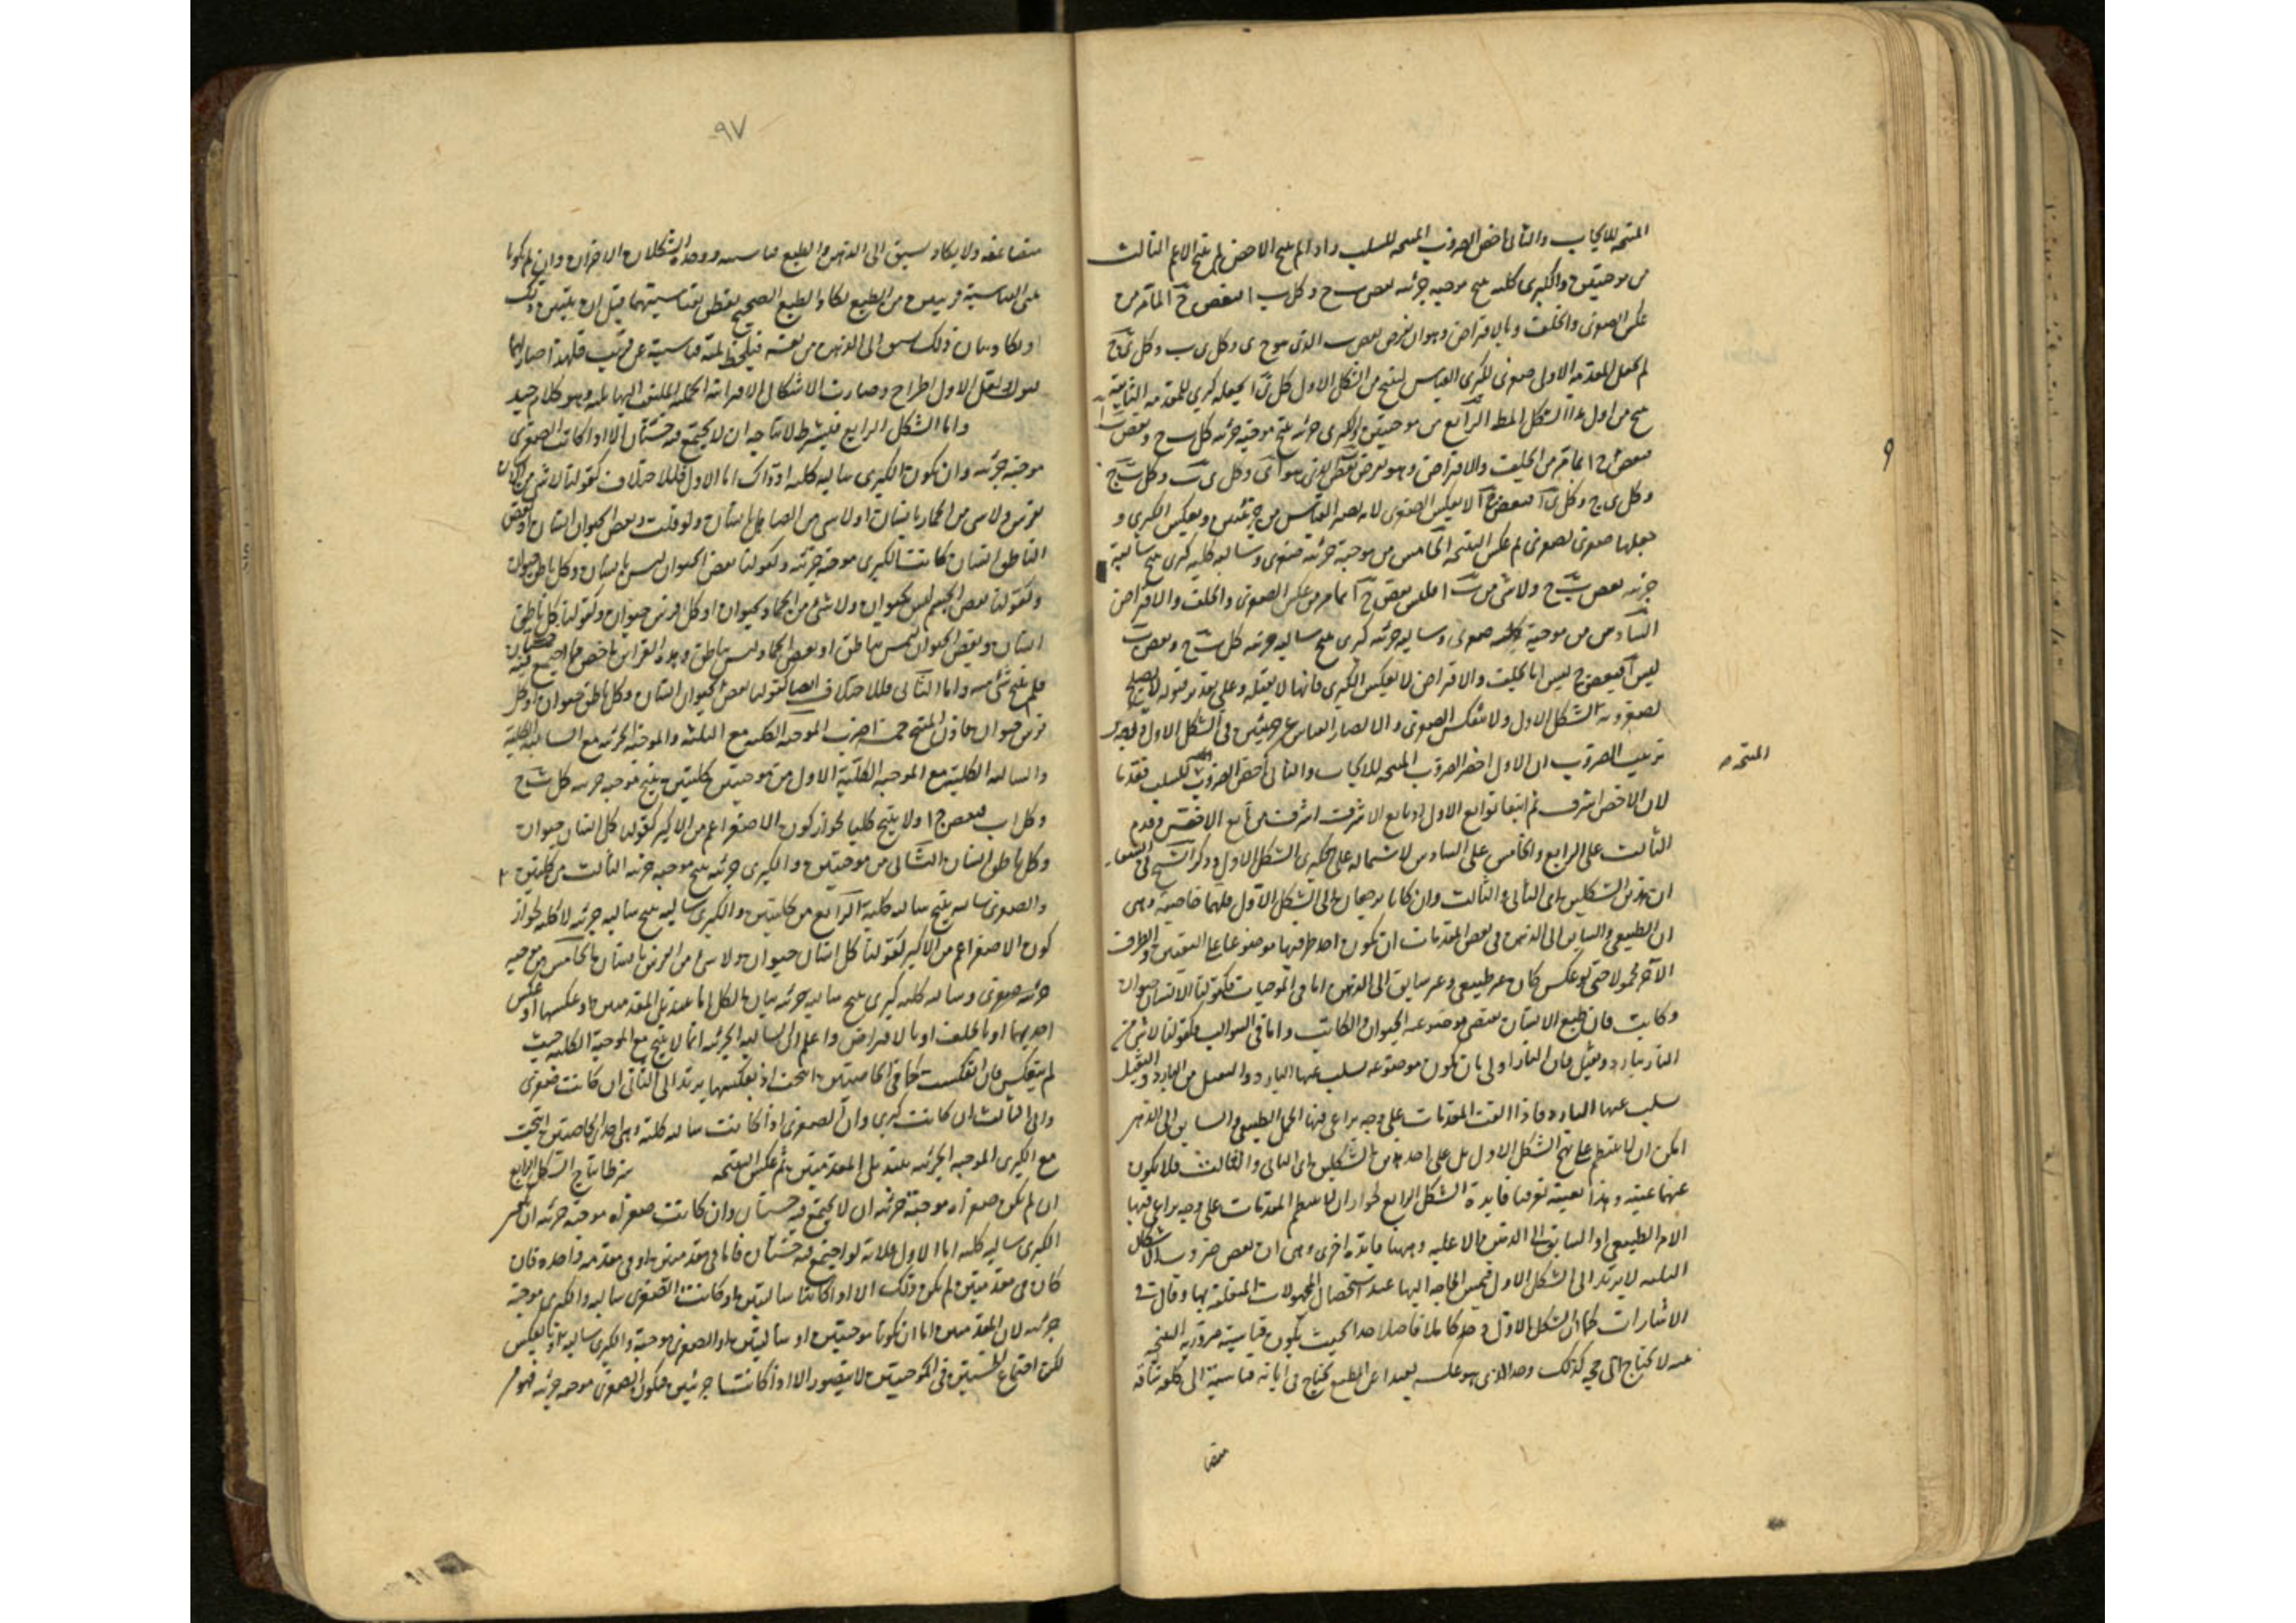 المنتجة للايجاب والثانى اخص الضروب المنتجة للسلب واذا لم ينتج الاخص لم ينتج الاعم الثالث
من موجبتين والكبرى كلية ينتج موجبة جزئية بعض ب ج وكل ب ا فبعض ج ا لما مر من
عكس الصغرى والخلف وبالافتراض وهو ان نفرض بعض ب الذى هو ج ى وكل ى ب وكل ى ج
ثم نجعل المقدمة الاولى صغرى لكبرى القياس لينتج من الشكل الاول كل ى ا نجعله كبرى للمقدمة الثانية
ينتج من اول هذا الشكل المط الرابع من موجبتين والكبرى جزئية ينتج موجبة جزئية كل ب ج وبعض ب ا
فبعض ج ا لما مر من الخلف والافتراض وهو نفرض بعض ب الذى هو ا ى وكل ى ب وكل ب ج
وكل ى ج وكل ى ا فبعض ج ا لا بعكس الصغرى لانه يصير القياس من جزئيتين وبعكس الكبرى و
جعلها صغرى للصغرى ثم عكس النتيجة الخامس من موجبة جزئية صغرى وسالبة كلية كبرى ينتج سالبة
جزئية بعض ب ج ولا شئ من ب ا فليس بعض ج ا لما مر من عكس الصغرى والخلف والافتراض
السادس من موجبة كلية صغرى وسالبة جزئية كبرى ينتج سالبة جزئية كل ب ج وبعض ب
ليس ا فبعض ج ليس ا بالخلف والافتراض لا بعكس الكبرى فانها لا تقبله وعلى تقدير قبوله لا يصلح
لصغروية الشكل الاول ولا بعكس الصغرى والا لصار القياس عن جزئيتين فى الشكل الاول ووجه
ترتيب الضروب ان الاول اخص الضروب المنتجة للايجاب والثانى اخص الضروب للسلب فقدما
المنتجة صح
لان الاخص اشرف ثم اتبعا توابع الاول اذ تابع الاشرف اشرف من تابع الاخس وقدم
الثالث على الرابع والخامس على السادس لاشتماله على كبرى الشكل الاول وذكر الشيخ فى الشفاء
ان هذين الشكلين اى الثانى والثالث وان كانا يرجعان الى الشكل الاول فلهما خاصية وهى
ان الطبيعى والسابق الى الذهن فى بعض المقدمات ان يكون احد طرفيها موضوعا على التعيين والطرف
الآخر محمولا حتى لو عكس كان غير طبيعى وغير سابق الى الذهن اما فى الموجبات فكقولنا الانسان حيوان
وكاتب فان طبع الانسان يقتضى موضوعية الحيوان والكاتب واما فى السوالب فكقولنا لا شئ من
النار ببارد وثقيل فان النار اولى بان تكون موضوعة يسلب عنها البارد والثقيل من البارد والثقيل
يسلب عنها النار فاذا الفت المقدمات على وجه يراعى فيها الحمل الطبيعى والسابق الى الذهن
امكن ان لا ينتظم على نهج الشكل الاول بل على احد هذين الشكلين اى الثانى والثالث فلا يكون
عنهما غنية وهذا بعينه تعرفنا فايدة الشكل الرابع لجواز ان لا ينتظم المقدمات على وجه يراعى فيها
الامر الطبيعى او السابق الى الذهن الا عليه وههنا فايدة اخرى وهى ان بعض ضروب الاشكال
الثلثة لا يرتد الى الشكل الاول فيمس الحاجة اليها عند استحصال المجهولات المتعلقة بها وقال فى
الاشارات كما ان الشكل الاول وجد كاملا فاضلا جدا بحيث يكون قياسيته ضرورية النتيجة
بينة لا يحتاج الى حجة كذلك وجد الذى هو عكسه بعيدا عن الطبع يحتاج فى ابانة قياسيته الى كلفة شاقة
متضا
٩٧
متضاعفة ولا يكاد يسبق الى الذهن والطبع قياسيته ووجد الشكلان الاخران وان لم يكونا
بينى القياسية قريبين من الطبع يكاد الطبع الصحيح يفطن لقياسيتهما قبل ان يتبين ذلك
او يكاد بيان ذلك يسبق الى الذهن من نفسه فيلحظ لمية قياسيته عن قريب فلهذا صار لهما
قبول ولعكس الاول اطراح وصارت الاشكال الاقترانية الحملية الملتفت اليها ثلثة وهو كلام جيد
واما الشكل الرابع فيشترط لانتاجه ان لا يجتمع فيه خستان الا اذا كانت الصغرى
موجبة جزئية وان تكون الكبرى سالبة كلية اذ ذاك اما الاول فللاختلاف كقولنا لا شئ من الانسان
بفرس ولا شئ من الحمار بانسان او لا شئ من الصاهل بانسان ولو قلت وبعض الحيوان انسان او بعض
الناطق انسان كانت الكبرى موجبة جزئية وكقولنا بعض الحيوان ليس بانسان وكل ناطق حيوان
وكقولنا بعض الجسم ليس بحيوان ولا شئ من الجماد بحيوان او كل فرس حيوان وكقولنا كل ناطق
انسان وبعض الحيوان ليس بناطق او بعض الجماد ليس بناطق وهذه القراين اخص ما اجتمع فيه خستان
فلم ينتج شئ منه واما الثانى فللاختلاف ايضا كقولنا بعض الحيوان انسان وكل ناطق حيوان او كل
فرس حيوان فاذن المنتج خمسة اضرب الموجبة الكلية مع الثلثة والموجبة الجزئية مع السالبة الكلية
والسالبة الكلية مع الموجبة الكلية الاول من موجبتين كليتين ينتج موجبة جزئية كل ب ج
وكل ا ب فبعض ج ا ولا ينتج كليا لجواز كون الاصغر اعم من الاكبر كقولنا كل انسان حيوان
وكل ناطق انسان الثانى من موجبتين والكبرى جزئية ينتج موجبة جزئية الثالث من كليتين
والصغرى سالبة ينتج سالبة كلية الرابع من كليتين والكبرى سالبة ينتج سالبة جزئية لا كلية لجواز
كون الاصغر اعم من الاكبر كقولنا كل انسان حيوان ولا شئ من الفرس بانسان الخامس من موجبة
جزئية صغرى وسالبة كلية كبرى ينتج سالبة جزئية بيان الكل اما بتبديل المقدمتين او عكسهما او عكس
احديهما او بالخلف او بالافتراض واعلم ان السالبة الجزئية انما لا ينتج مع الموجبة الكلية حيث
لم ينعكس فان انعكست كما فى الخاصيتين انتجت اذ بعكسها يرتد الى الثانى ان كانت صغرى
والى الثالث ان كانت كبرى وان الصغرى اذا كانت سالبة كلية وهى احدى الخاصتين انتجت
مع الكبرى الموجبة الجزئية بتبديل المقدمتين ثم عكس النتيجة شرط انتاج الشكل الرابع
ان لم يكن صغراه موجبة جزئية ان لا يجتمع فيه خستان وان كانت صغراه موجبة جزئية ان يكون
الكبرى سالبة كلية اما الاول فلانه لو اجتمع فيه خستان فاما فى مقدمتين او فى مقدمة واحدة فان
كان فى مقدمتين لم يكن ذلك الا اذا كانتا سالبتين او كانت الصغرى سالبة والكبرى موجبة
جزئية لان المقدمتين اما ان تكونا موجبتين او سالبتين او الصغرى موجبة والكبرى سالبة او بالعكس
لكن اجتماع الخستين فى الموجبتين لا يتصور الا اذا كانتا جزئيتين فيكون الصغرى موجبة جزئية فهو